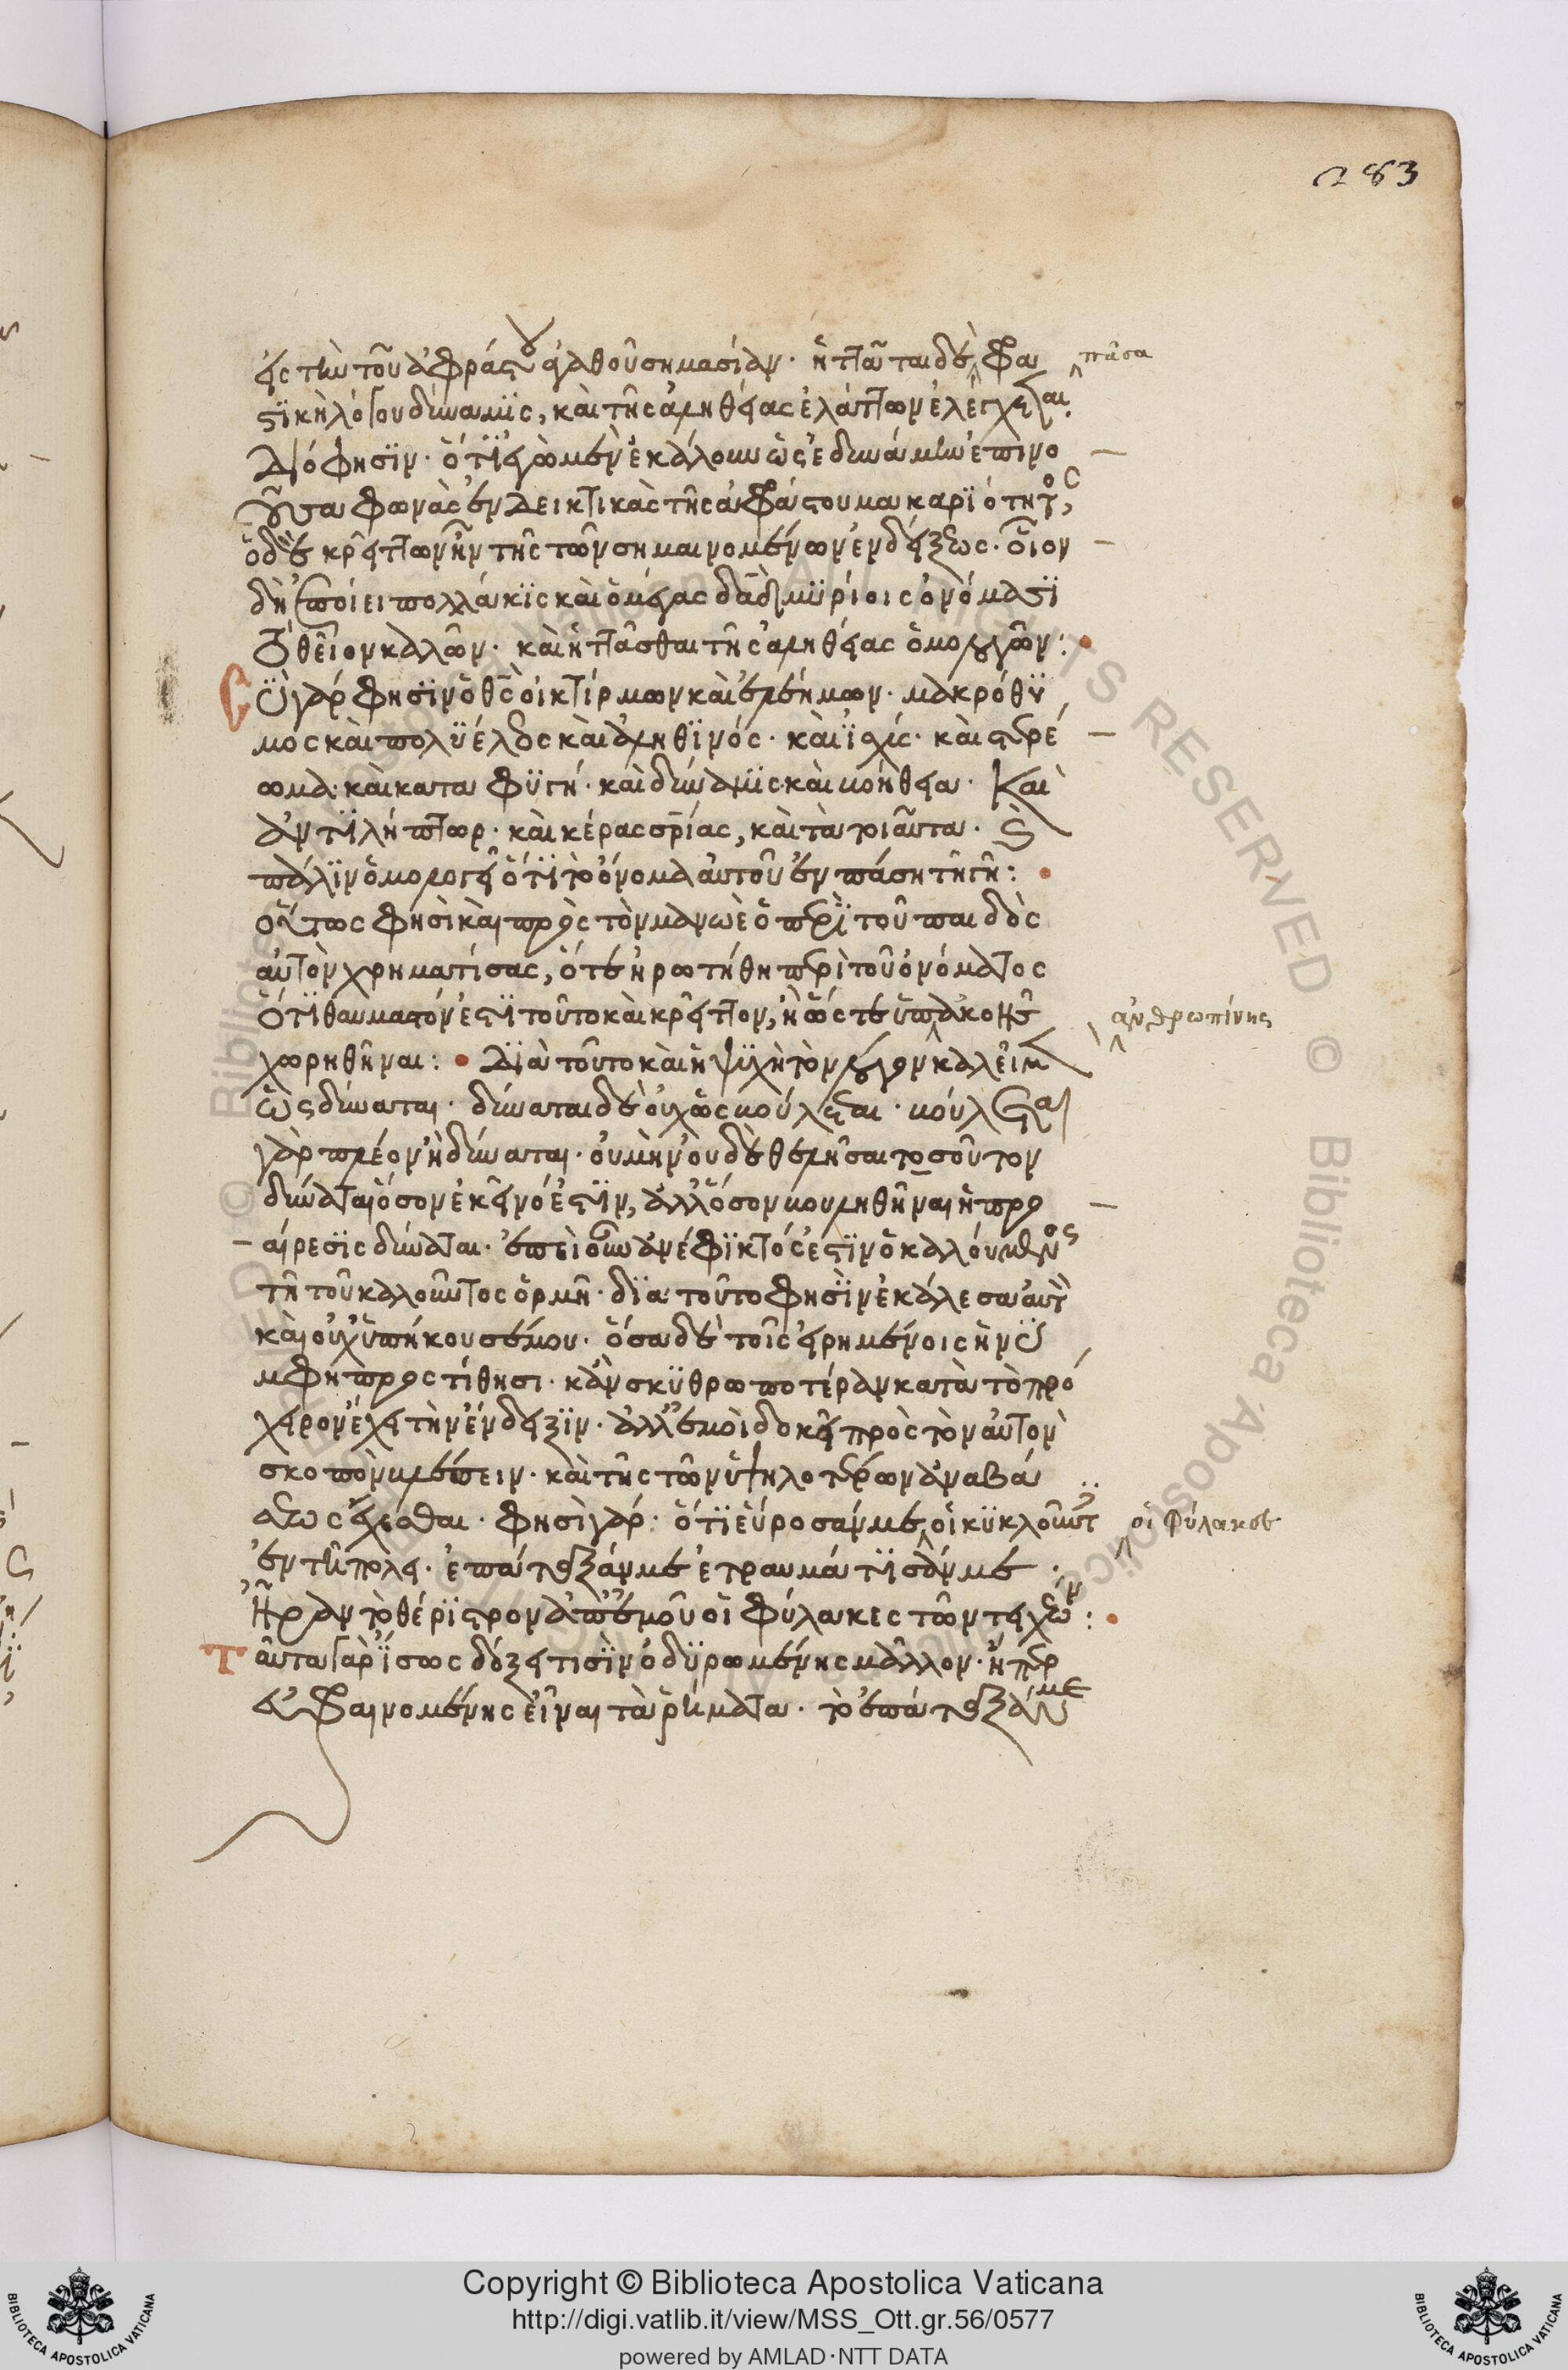 283
εἰς τὴν τοῦ ἀφράστου ἀγαθοῦ σημασίαν· ἡττᾶται δὲ φα
πᾶσα
στικὴ λόγου δύναμις, καὶ τῆς ἀληθείας ἐλάττων ἐλέγχεται
διό φησιν· ὅτι ἐγὼ μὲν ἐκάλουν ὡς ἐδυνάμην ἐπινο
οῦσα φωνὰς ἐνδεικτικὰς τῆς ἀφράστου μακαριότητος,
ὁ δὲ κρείττων ἦν τῆς τῶν σημαινομένων ἐνδείξεως· οἷον
δὴ ποιεῖ πολλάκις καὶ ὁ μέγας δαδ μυρίοις ὀνόμασι
τὸ θεῖον καλῶν· καὶ ἡττᾶσθαι τῆς ἀληθείας ὁμολογῶν:
Σὺ γάρ φησιν ὁ θς οἰκτίρμων καὶ ἐλεήμων· μακρόθυ
μος καὶ πολυέλεος καὶ ἀληθινός· καὶ ἰσχύς· καὶ στερέ
ωμα· καὶ καταφυγή· καὶ δύναμις· καὶ βοήθεια· καὶ
ἀντιλήπτωρ· καὶ κέρας σρίας, καὶ τὰ τοιαῦτα· καὶ
πάλιν ὁμολογεῖ ὅτι τὸ ὄνομα αὐτοῦ ἐν πάση τῆ γῆ:
οὕτως φησὶ καὶ πρὸς τὸν μανωὲ ὁ περὶ τοῦ παιδὸς
αὐτὸν χρηματίσας, ὅτε ἠρωτήθη περὶ τοῦ ὀνόματος
ὅτι θαυμαστόν ἐστι τοῦτο καὶ κρεῖττον, ἢ ὥστε ὑπ ἀκοῆς
ἀνθρωπίνης
χωρηθῆναι: διὰ τοῦτο καὶ ἡ ψυχὴ τὸν λόγον καλεῖ μὲν
ὡς δύναται· δύναται δὲ οὐχ ὡς βούλεται· βούλεται
γὰρ πλέον ἢ δύναται· οὐ μὴν οὐδὲ θελῆσαι τοσοῦτον
δύναται ὅσον ἐκεῖνό ἐστιν, ἀλλ ὅσον βουληθῆναι ἡ προ
αίρεσις δύναται· ἐπεὶ οὖν ἀνέφικτός ἐστιν ὁ καλούμενος
τῆ τοῦ καλοῦντος ὁρμῆ· διὰ τοῦτο φησὶν ἐκάλεσα αὐτὸν
καὶ οὐχ ὑπήκουσέ μου· ὅσα δὲ τοῖς εἰρημένοις ἡ νύ
μφη προστίθησι· κἂν σκυθρωποτέραν κατὰ τὸ πρό
χειρον ἔχει τὴν ἔνδειξιν· ἀλλ ἐμοὶ δοκεῖ πρὸς τὸν αὐτὸν
σκοπὸν βλέπειν· καὶ τῆς τῶν ὑψηλοτέρων ἀναβά
σεως ἔχεσθαι· φησὶ γάρ· ὅτι εὕροσάν με οἱ κυκλοῦντες
οἱ φύλακες
ἐν τῆ πόλει· ἐπάταξάν με ἐτραυμάτισάν με·
ἦραν τὸ θέριστρον ἀπ ἐμοῦ οἱ φύλακες τῶν τειχέων:
Ταῦτα γὰρ ἴσως δόξει τισὶν ὀδυρωμένης μᾶλλον· ἤπερ
εὐφραινομένης εἶναι τὰ ῥήματα· τὸ ἐπάταξάν με
Copyright © Biblioteca Apostolica Vaticana
http://digi.vatlib.it/view/MSS_Ott.gr.56/0577
powered by AMLAD·NTT DATA